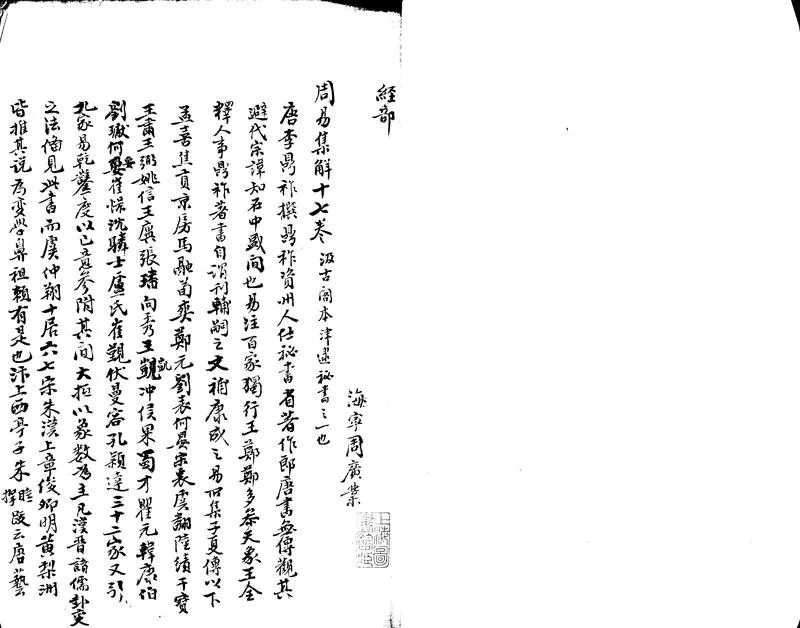 經部
海寧周廣業
周易集解十七卷 汲古閣本津逮秘書之一也
唐李鼎祚撰鼎祚資州人仕祕書省著作郎唐書無傳觀其
避代宗諱知在中或間也易注百家獨行王鄭鄭多參天象王全
釋人事鼎祚著書自謂刊輔嗣之文補康成之易所集子夏傳以下
孟喜焦貢京房馬融荀爽鄭元劉表何晏宋衷虞翻陸績干寶
王肅王弼姚信王廙張璠向秀王凱冲侯果蜀才瞿元韓康伯
劉瓛何妥崔憬沈驎士盧氏崔覲伏曼容孔穎達三十二家又引
九家易乾鑿度以己意參附其間大抵以象數為主凡漢晉諸儒卦變
之法備見此書而虞仲翔十居六七宋朱漢上章俊卿明黃梨洲
皆推其說為變學鼻祖賴有是也汴上西亭子朱睦㮮跋云唐藝